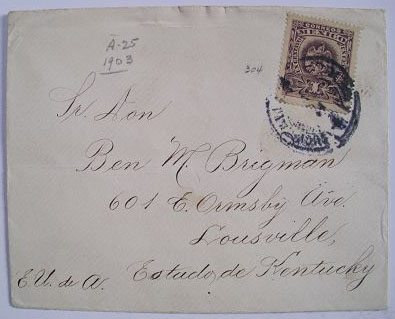 A-25
1903
304
CORREOS
MEXICO
1
Sr. Don
Ben M. Brigman
601 E. Ormsby Ave.
Lousville,
E.U. de A. Estado de Kentucky